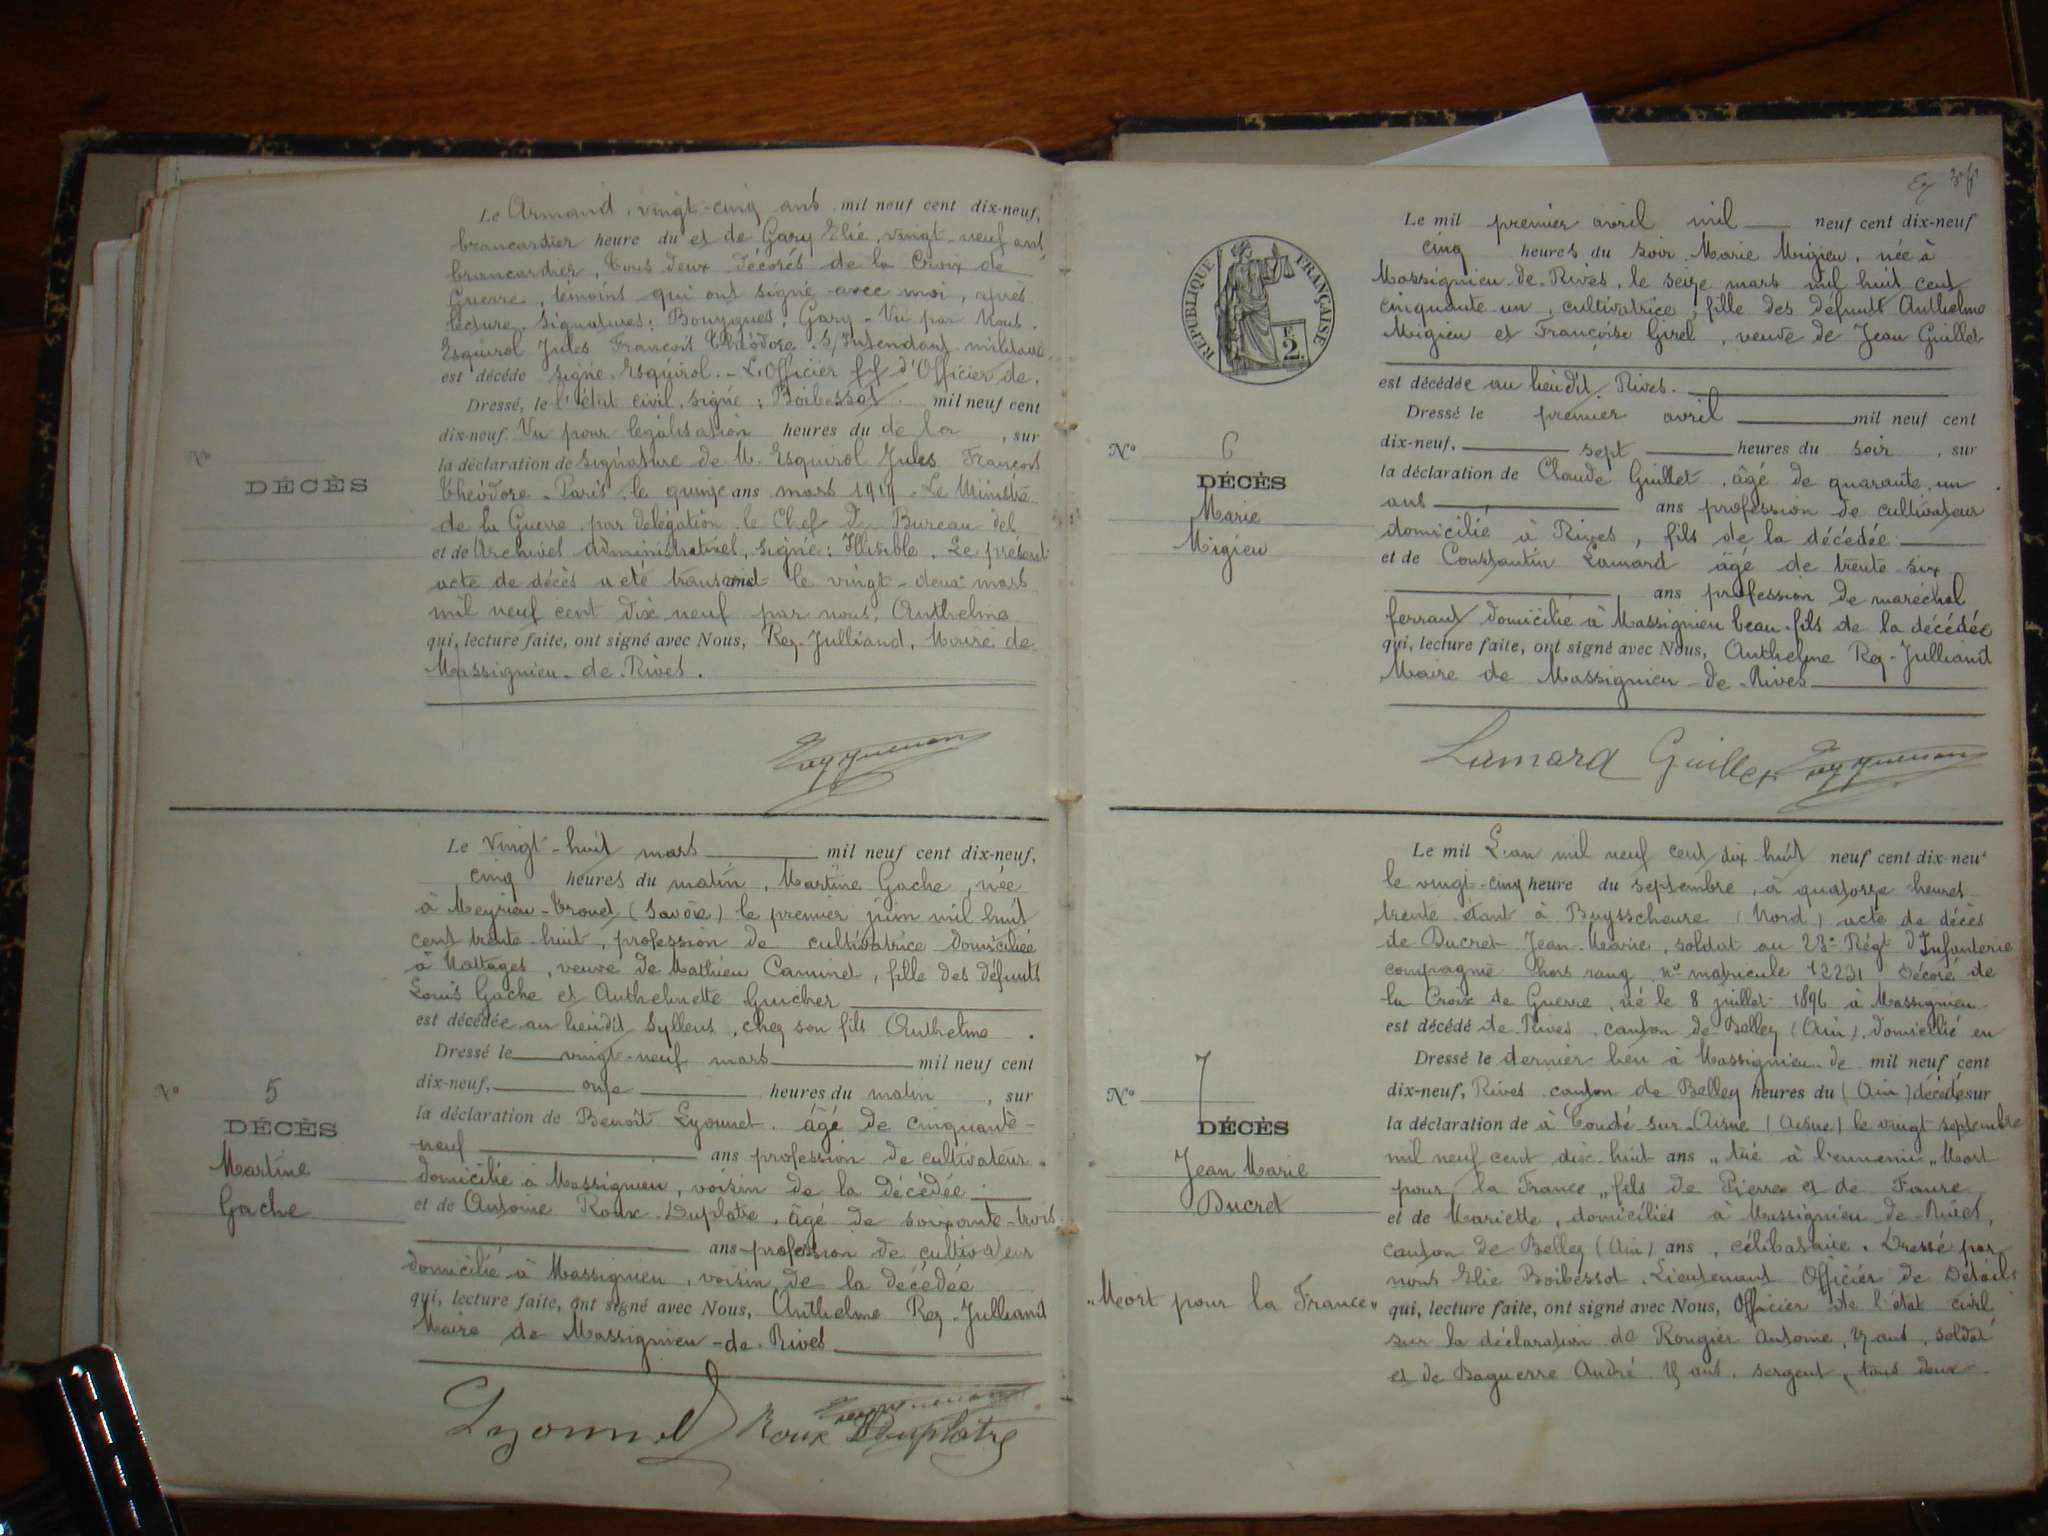 Le Armand, vingt-cinq ans mil neuf cent dix-neuf,
brancardier heure du et de Gary Elie, vingt-neuf ans
brancardier, tous deux décorés de la Croix de
Guerre, témoins qui ont signé avec moi, après
lecture. Signatures: Bouygues, Gary - Vu par Nous.
Esquirol Jules François Théodore. S/Intendant militaire
est décédé signé Esquirol. - L'Officier ff d'Officier de
Dressé, le l'état civil, signé: Boibessot. mil neuf cent
dix-neuf Vu pour légalisation heures du de la , sur
la déclaration de signature de M. Esquirol Jules François
Théodore - Paris, le quinze ans mars 1919 - Le Ministre
de la Guerre par délégation le Chef du Bureau des
et de Archives Administratives, signé: Illisible. Le présent
acte de décès a été transcrit le vingt-deux mars
mil neuf cent dix neuf par nous, Anthelme
qui, lecture faite, ont signé avec Nous, Rey-Julliand, Maire de
Massignieu-de-Rives.
No
DÉCÈS
Le vingt-huit mars mil neuf cent dix-neuf,
cinq heures du matin, Martine Gache, née
à Meyrieu-Trouet (Savoie) le premier juin mil huit
cent trente-huit, profession de cultivatrice domiciliée
à Nattages, veuve de Mathieu Caminet, fille des défunts
Louis Gache et Anthelmette Guicher
est décédée au lieudit Sylleus, chez son fils Anthelme.
Dressé le vingt-neuf mars mil neuf cent
dix-neuf, onze heures du matin, sur
la déclaration de Benoît Lyonnet, âgé de cinquante-
neuf ans profession de cultivateur
domicilié à Massignieu, voisin de la décédée
et de Antoine Roux-Duplatre, âgé de soixante-trois
ans profession de cultivateur
domicilié à Massignieu, voisin de la décédée
qui, lecture faite, ont signé avec Nous, Anthelme Rey-Julliand
Maire de Massignieu-de-Rives
No 5
DÉCÈS
Martine
Gache
Lyonnet Roux Duplatre
RÉPUBLIQUE FRANÇAISE
2
Le mil premier avril mil neuf cent dix-neuf
cinq heures du soir Marie Migieu, née à
Massignieu-de-Rives, le seize mars mil huit cent
cinquante un, cultivatrice, fille des défunts Anthelme
Migieu et Françoise Girel, veuve de Jean Guillet
est décédée au lieudit Rives.
Dressé le premier avril mil neuf cent
dix-neuf, sept heures du soir, sur
la déclaration de Claude Guillet, âgé de quarante un
ans ans profession de cultivateur
domicilié à Rives, fils de la décédée
et de Constantin Lamard âgé de trente-six
ans profession de maréchal
ferrant domicilié à Massignieu beau-fils de la décédée
qui, lecture faite, ont signé avec Nous, Anthelme Rey-Julliand
Maire de Massignieu-de-Rives
No 6
DÉCÈS
Marie
Migieu
Lamard Guillet
Le mil L'an mil neuf cent dix-huit neuf cent dix-neuf
le vingt-cinq heure du septembre, à quatorze heures
trente étant à Buysscheure (Nord) acte de décès
de Ducret Jean-Marie, soldat au 23e Régt d'Infanterie
compagnie hors rang, no matricule 12231 Décoré de
la Croix de Guerre, né le 8 juillet 1896 à Massignieu
est décédé de Rives, canton de Belley (Ain), domicilié en
Dressé le dernier lieu à Massignieu-de- mil neuf cent
dix-neuf, Rives canton de Belley heures du (Ain) décédé sur
la déclaration de à Condé-sur-Aisne (Aisne) le vingt septembre
mil neuf cent dix-huit ans „tué à l'ennemi„ Mort
pour la France„ fils de Pierre et de Faure
et de Mariette, domiciliés à Massignieu-de-Rives,
canton de Belley (Ain) ans, célibataire. Dressé par
nous Elie Boibessot, Lieutenant Officier de Détails
qui, lecture faite, ont signé avec Nous, Officier de l'état civil
sur la déclaration de Rougier Antoine, ans, soldat
et de Baguerre André, ans, sergent, tous deux
No 7
DÉCÈS
Jean Marie
Ducret
„Mort pour la France„